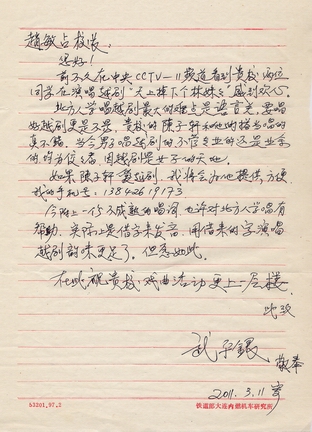 赵敏占校长:
您好!
前不久在中央CCTV-11频道看到贵校两位
同学在演唱越剧"天上掉下个林妹妹"感到欢欣。
北方人学唱越剧最大的难点是语言关,要唱
好越剧更是不易,贵校的陈子轩和他的搭当唱的
真不错。当今男子唱越剧的不管专业的还是业余
的均为位之者,因越剧是女子的天地。
如果陈子轩 越剧,我将会为他提供方便
我的手机号:13842619173
今附上一份不成熟的唱词,也许对北方人学唱有
帮助。实际上是借字来发音,用借来的字演唱
越剧韵味更足了。但愿如此。
在此祝贵校戏曲活动更上一层楼
此致
武 银 敬奉
2011.3.11寄
53201,97,2
铁道部大连内燃机车研究所